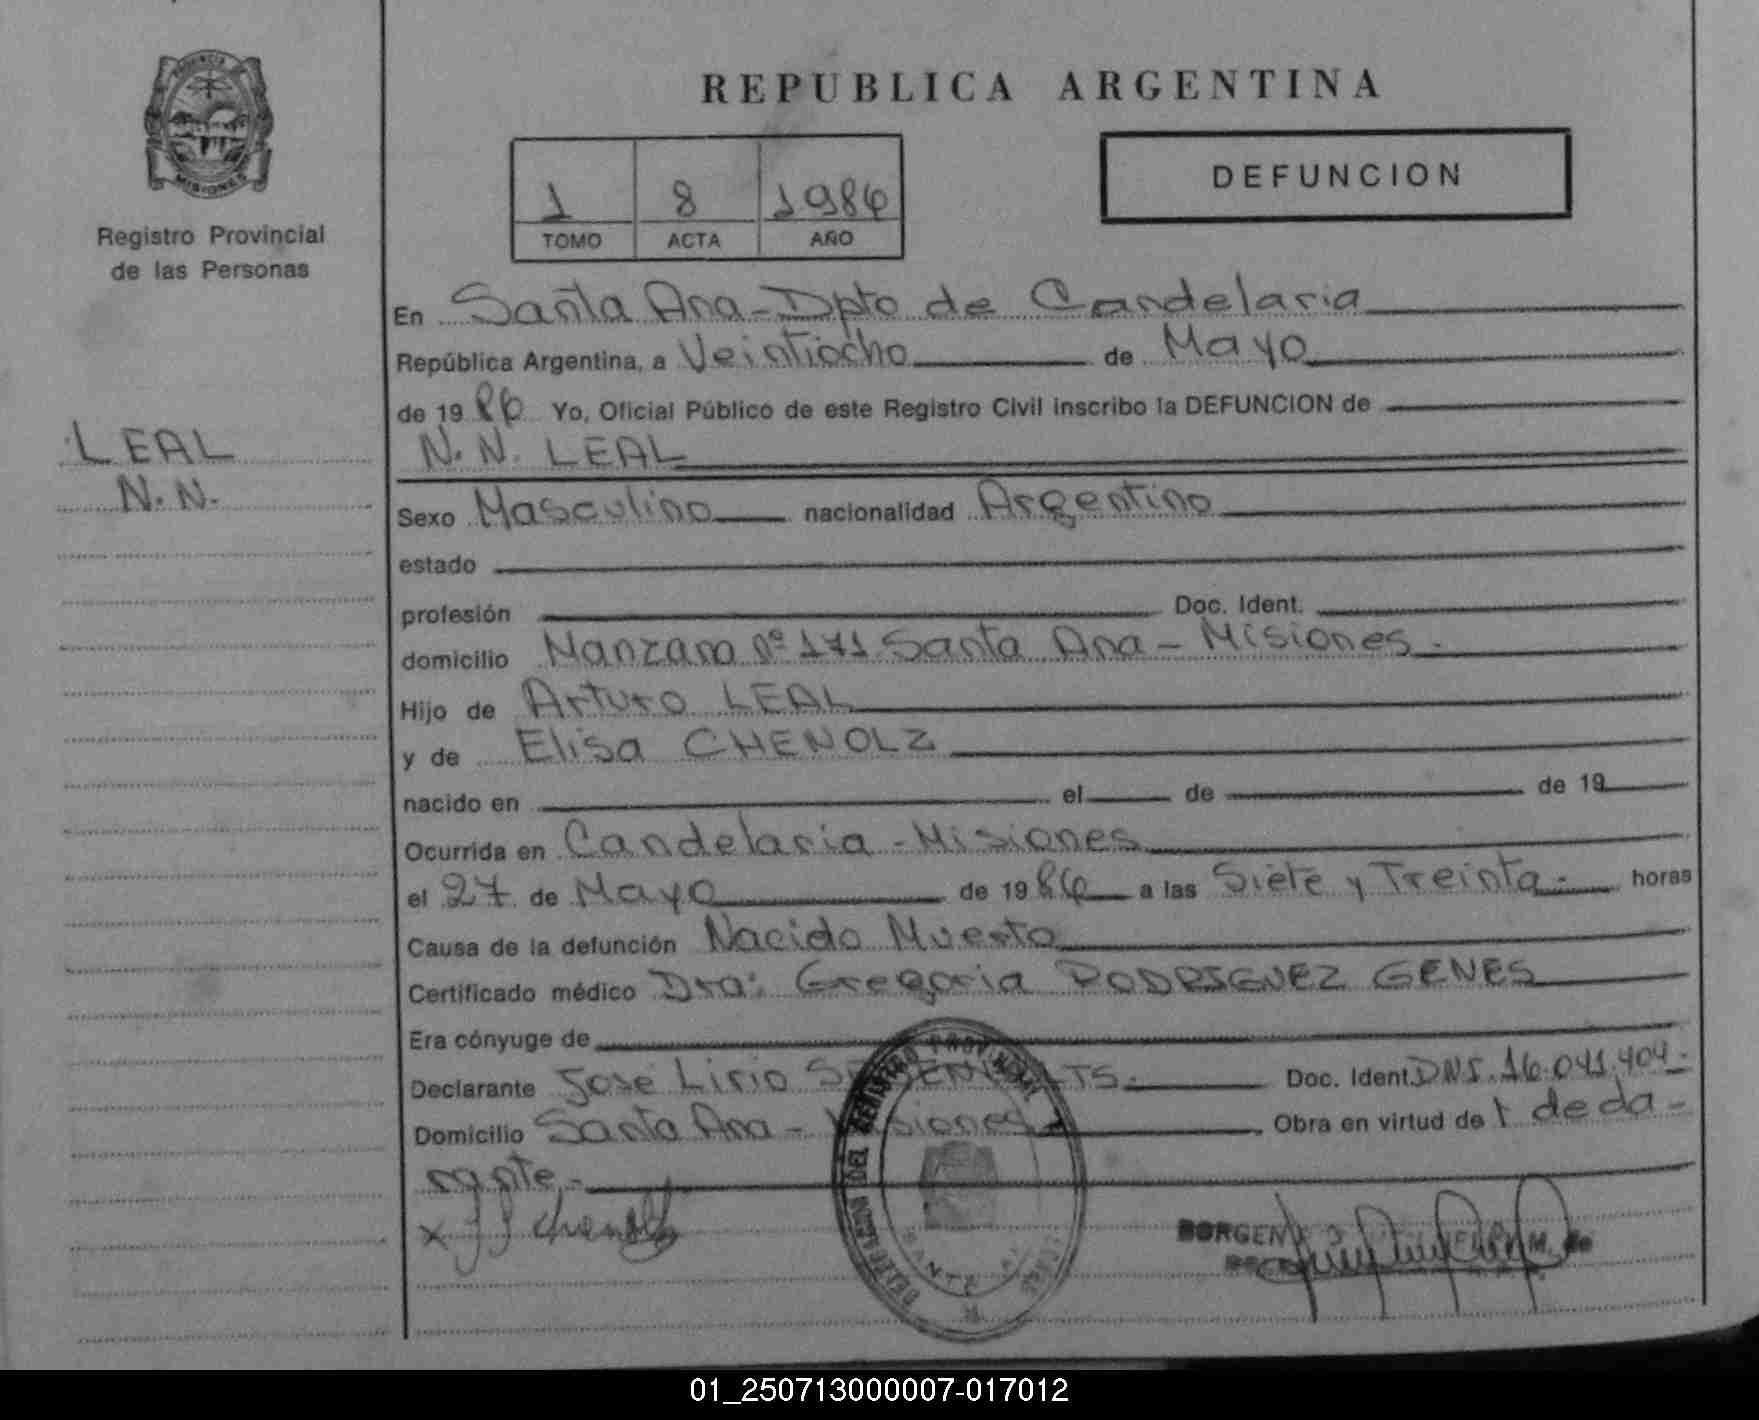 PROVINCIA
MISIONES
Registro Provincial
de las Personas
LEAL
N. N.
REPUBLICA ARGENTINA
1 8 1986
TOMO ACTA AÑO
DEFUNCION
En Santa Ana - Dpto de Candelaria
República Argentina, a Veintiocho de Mayo
de 19 86 Yo, Oficial Público de este Registro Civil inscribo la DEFUNCION de
N. N. LEAL
Sexo Masculino nacionalidad Argentino
estado
profesión Doc. Ident.
domicilio Manzana Nº 171 Santa Ana - Misiones.
Hijo de Arturo LEAL
y de Elisa CHENOLZ
nacido en el de de 19
Ocurrida en Candelaria - Misiones
el 27 de Mayo de 19 86 a las Siete y Treinta.- horas
Causa de la defunción Nacido Muerto
Certificado médico Dra: Gregoria RODRIGUEZ GENES
Era cónyuge de
Declarante Jose Lirio Doc. Ident. DNI. 16.041.404.-
Domicilio Santa Ana - Misiones Obra en virtud de
DEL REGISTRO PROVINCIAL
SANTA
01_250713000007-017012